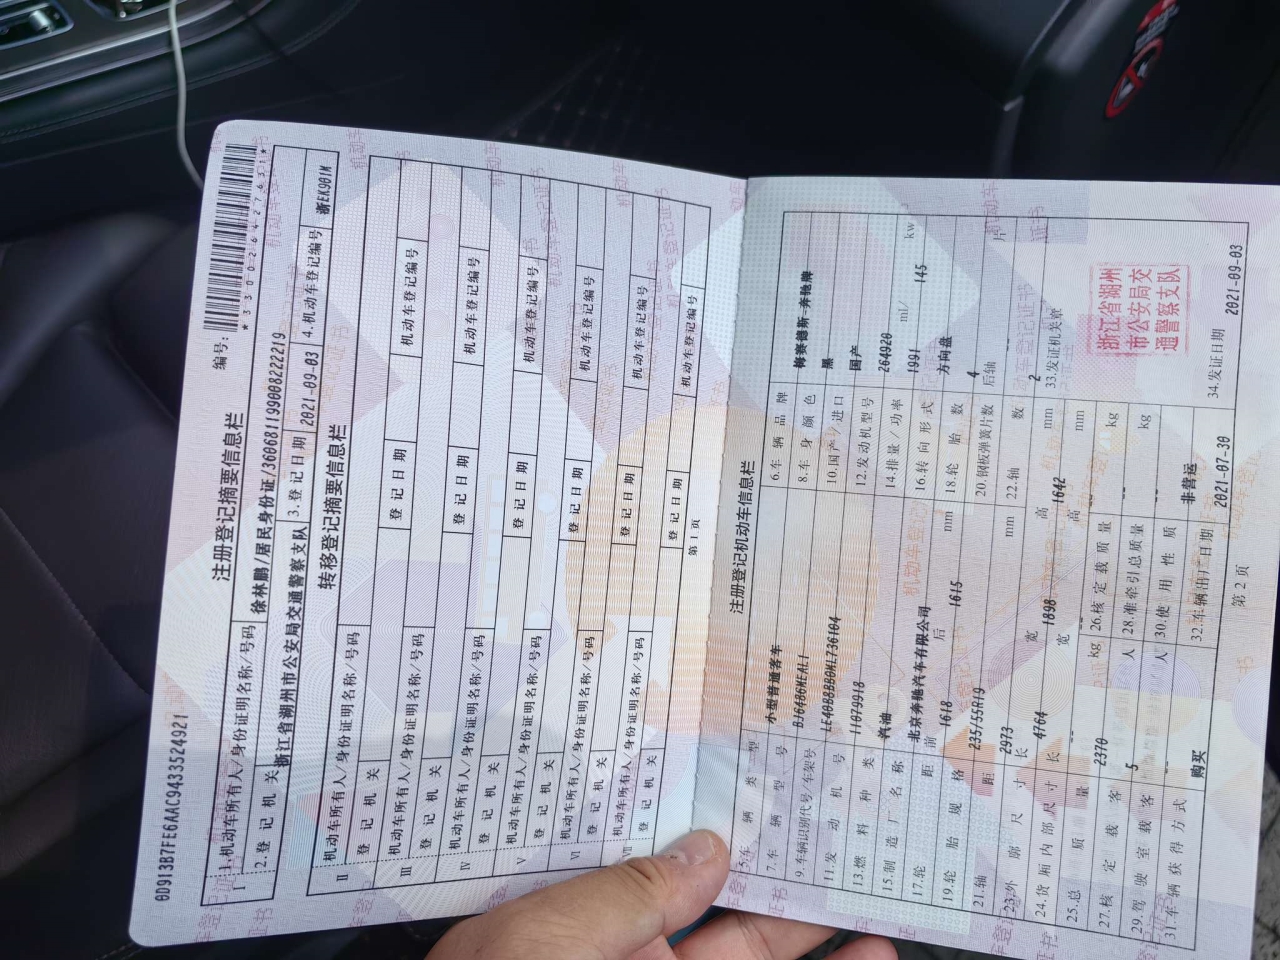 0D913B7FE6AAC94335524921
编号:
*330026427631*
注册登记摘要信息栏
I
1.机动车所有人/身份证明名称/号码 徐林鹏/居民身份证/360681199008222219
2.登记机关 浙江省湖州市公安局交通警察支队 3.登记日期 2021-09-03 4.机动车登记编号 浙EK901M
转移登记摘要信息栏
II 机动车所有人/身份证明名称/号码
登记机关 登记日期 机动车登记编号
III 机动车所有人/身份证明名称/号码
登记机关 登记日期 机动车登记编号
IV 机动车所有人/身份证明名称/号码
登记机关 登记日期 机动车登记编号
V 机动车所有人/身份证明名称/号码
登记机关 登记日期 机动车登记编号
VI 机动车所有人/身份证明名称/号码
登记机关 登记日期 机动车登记编号
VII 机动车所有人/身份证明名称/号码
登记机关 登记日期 机动车登记编号
第1页
注册登记机动车信息栏
5.车辆类型 小型普通客车 6.车辆品牌 梅赛德斯-奔驰牌
7.车辆型号 BJ6486MEAL1 8.车身颜色 黑
9.车辆识别代号/车架号 LE40B8BB0ML736104 10.国产/进口 国产
11.发动机号 11079918 12.发动机型号 264920
13.燃料种类 汽油 14.排量/功率 1991 ml/ 145 kw
15.制造厂名称 北京奔驰汽车有限公司 16.转向形式 方向盘
17.轮距 前 1618 后 1615 mm 18.轮胎数 4
19.轮胎规格 235/55R19 20.钢板弹簧片数 后轴 -- 片
21.轴距 2973 mm 22.轴数 2
23.外廓尺寸 长 4764 宽 1898 高 1642 mm 33.发证机关章
浙江省湖州
市公安局交
通警察支队
24.货厢内部尺寸 长 -- 宽 高 mm
25.总质量 2370 kg 26.核定载质量 -- kg
27.核定载客 5 人 28.准牵引总质量 -- kg
29.驾驶室载客 -- 人 30.使用性质 非营运
31.车辆获得方式 购买 32.车辆出厂日期 2021-07-30 34.发证日期 2021-09-03
第2页